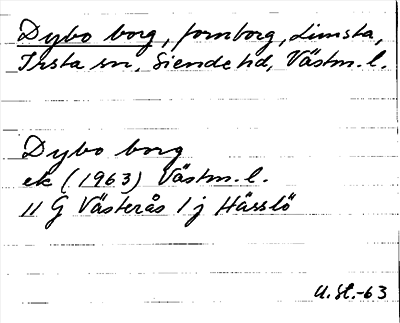 Dybo borg, fornborg, Limsta,
Irsta sn, Siende hd, Västm. l.
Dybo borg
ek (1963) Västm. l.
11 G Västerås 1 j Hässlö
U.St.-63